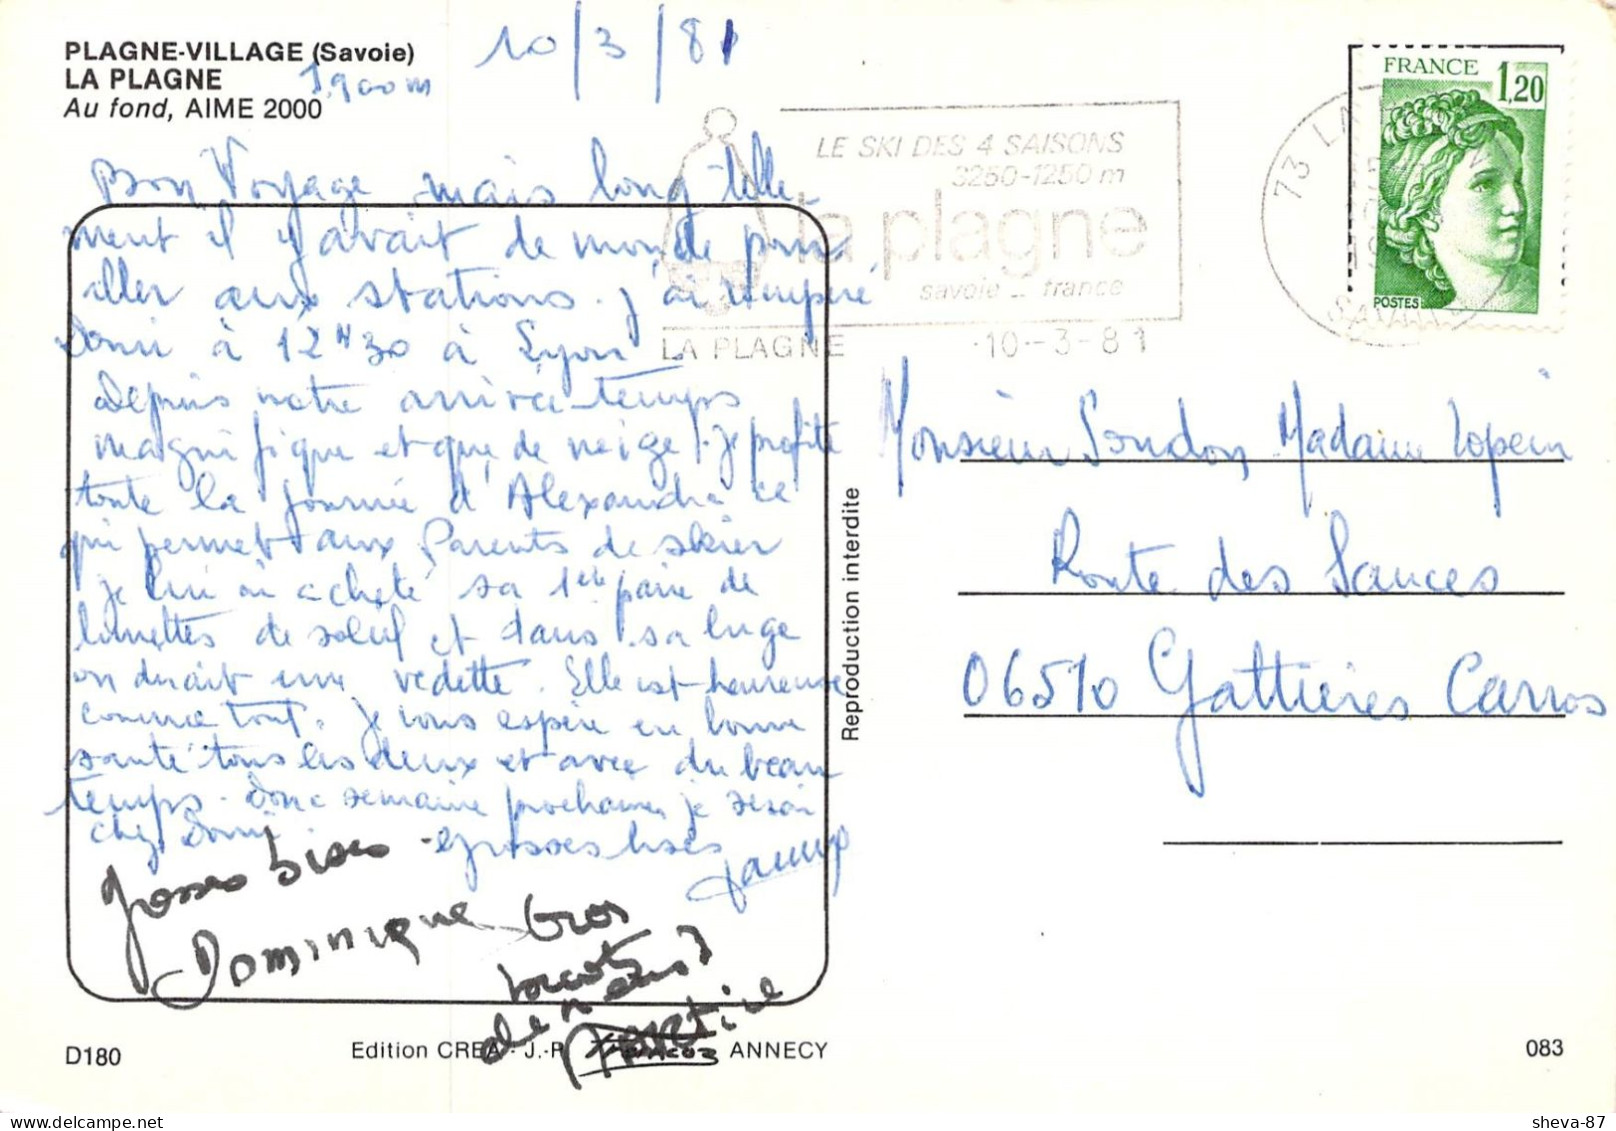 PLAGNE-VILLAGE (Savoie)
LA PLAGNE
1.900 m
Au fond, AIME 2000
10/3/81
Bon Voyage mais long telle-
ment il y avait de monde pour
aller aux stations. J'ai récupéré
Domi à 12H30 à Lyon.
Depuis notre arrivée temps
magnifique et que de neige! Je profite
toute la journée d'Alexandra ce
qui permet aux Parents de skier
je lui ai acheté sa 1ère paire de
lunettes de soleil et dans sa luge
on dirait une vedette. Elle est heureuse
comme tout. Je vous espère en bonne
santé tous les deux et avec du beau
temps. Donc semaine prochaine je serai
chez Domi. grosses bises
Grosses bises
Dominique
Gros
de nous
Martine
D180
Edition CREA - J.-P. ANNECY
Reproduction interdite
LE SKI DES 4 SAISONS
3250-1250 m
la plagne
savoie - france
LA PLAGNE
10-3-81
73 LA
SAVOIE
FRANCE 1,20
POSTES
Monsieur Madame
Route des
06510 Gattières Carros
083
sheva-87